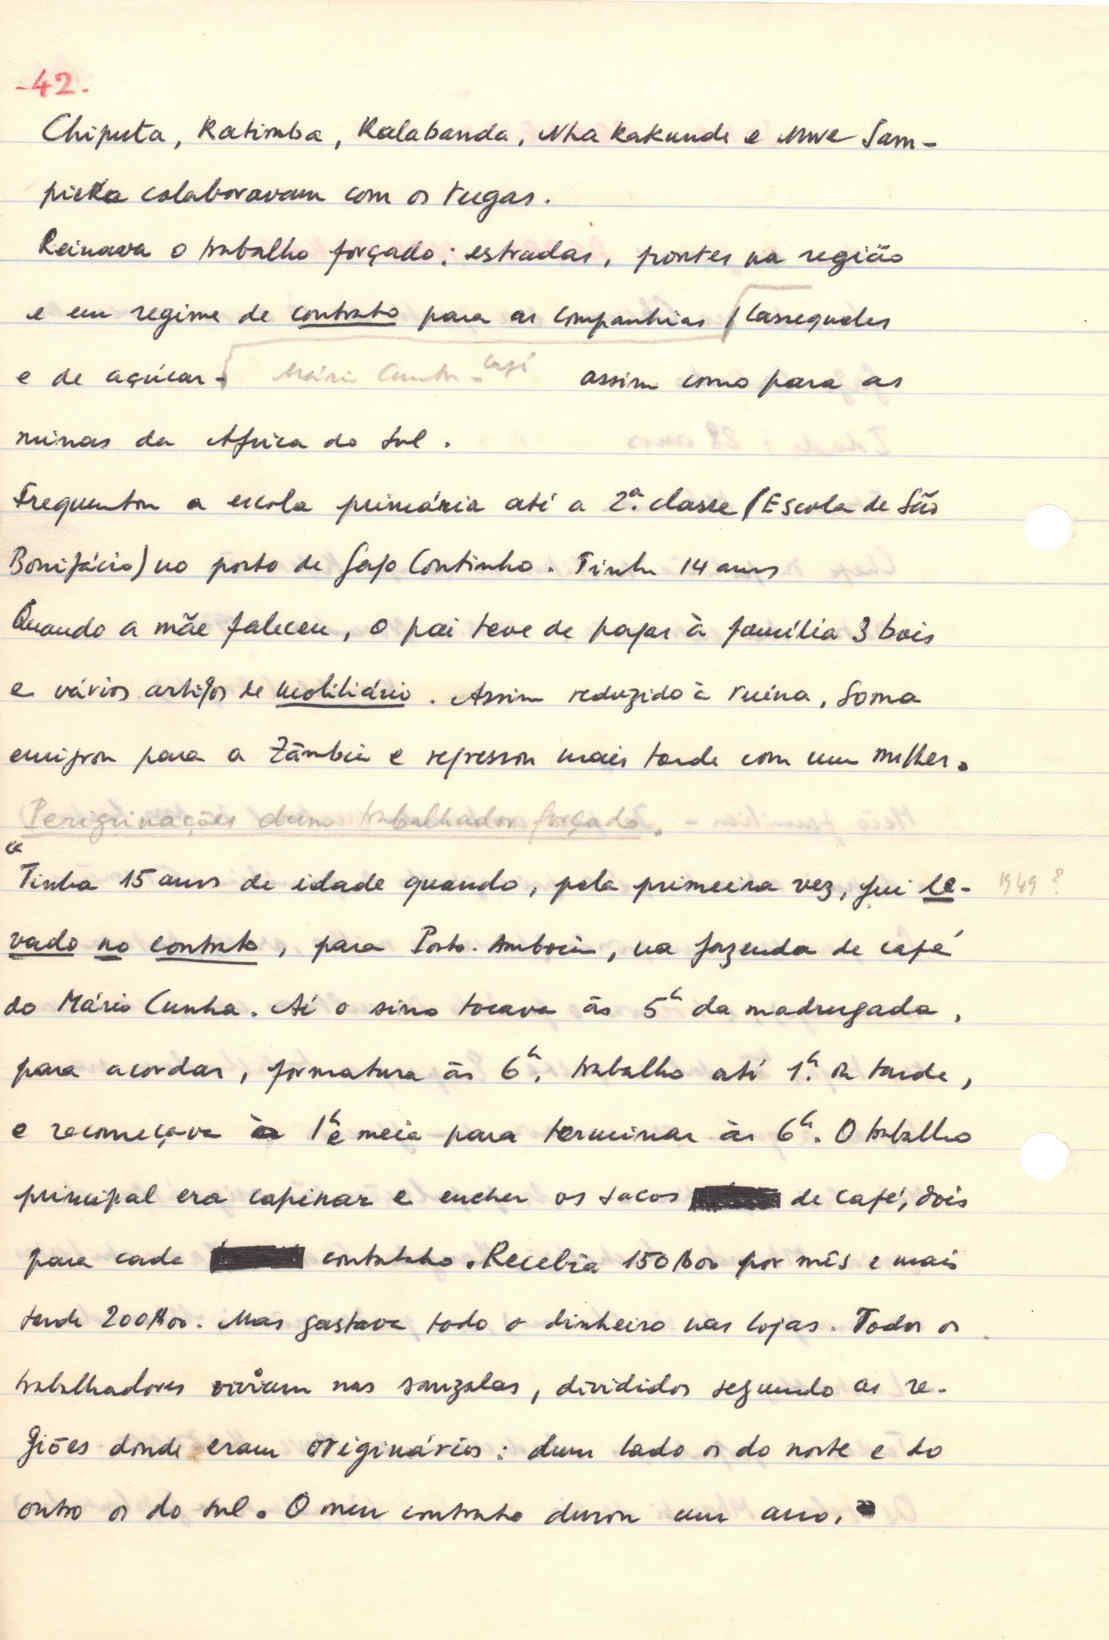 -42.
Chiputa, Katimba, Kalabanda, Nha Kakunde e Mwe Sam-
pieka colaboravam com os tugas.
Reinava o trabalho forçado: estradas, pontes na região
e em regime de contrato para as companhias (Cassequeles
e de açúcar. Mário Cunha - café assim como para as
minas da Africa do Sul.
Frequentou a escola primária até a 2ª. classe (Escola de São
Bonifácio) no posto de Gago Coutinho. Tinha 14 anos
Quando a mãe faleceu, o pai teve de pagar à família 3 bois
e vários artigos de mobiliário. Assim reduzido à ruína, Soma
emigrou para a Zâmbia e regressou mais tarde com um milher.
Perigrinações dum trabalhador forçado.
"Tinha 15 anos de idade quando, pela primeira vez, fui le- 1949?
vado no contrato, para Porto-Amboim, na fazenda de café
do Mário Cunha. Aí o sino tocava às 5h da madrugada,
para acordar, formatura às 6h, trabalho até 1h. da tarde,
e recomeçava à 1h e meia para terminar às 6h. O trabalho
principal era capinar e encher os sacos de café, dois
para cada contratado. Recebia 150$00 por mês e mais
tarde 200$00. Mas gastava todo o dinheiro nas lojas. Todos os
trabalhadores viviam nas sanzalas, divididos segundo as re-
giões donde eram originários: dum lado os do norte e do
outro os do sul. O meu contrato durou um ano.